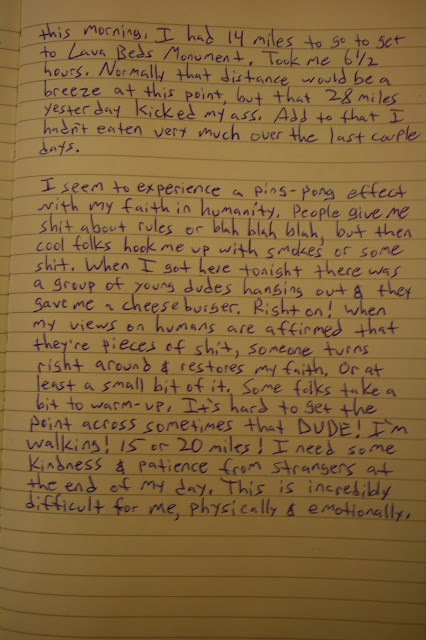 this morning. I had 14 miles to go to get
to Lava Beds Monument. Took me 6 1/2
hours. Normally that distance would be a
breeze at this point, but that 28 miles
yesterday kicked my ass. Add to that I
hadn't eaten very much over the last couple
days.
I seem to experience a ping-pong effect
with my faith in humanity. People give me
shit about rules or blah blah blah, but then
cool folks hook me up with smokes or some
shit. When I got here tonight there was
a group of young dudes hanging out & they
gave me a cheeseburger. Right on! When
my views on humans are affirmed that
they're pieces of shit, someone turns
right around & restores my faith. Or at
least a small bit of it. Some folks take a
bit to warm-up. It's hard to get the
point across sometimes that DUDE! I'm
walking! 15 or 20 miles! I need some
kindness & patience from strangers at
the end of my day. This is incredibly
difficult for me, physically & emotionally.